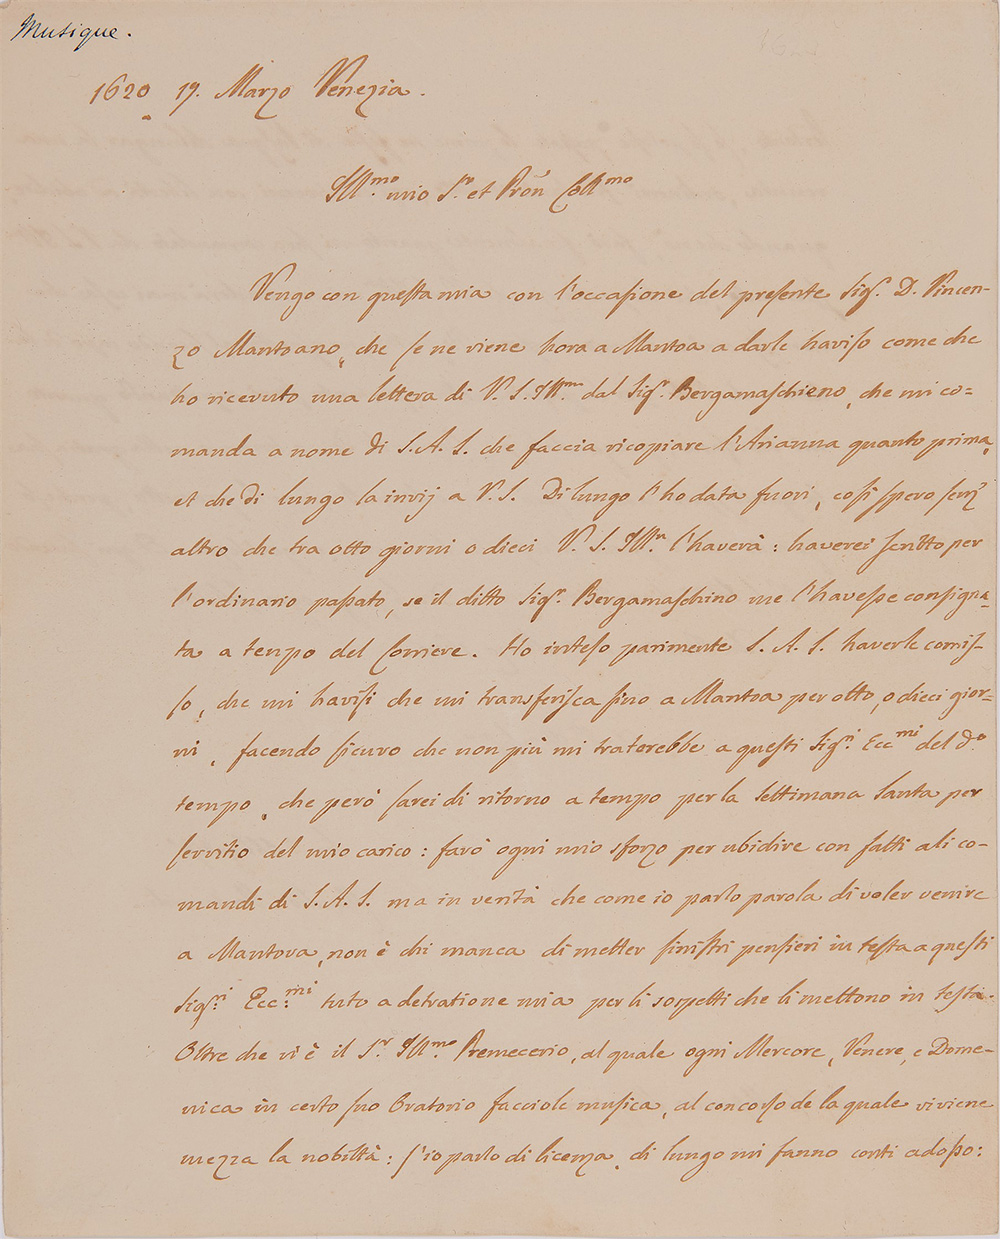 Musique.
1620 17. Marzo Venezia.
Ill.mo mio S.r et Pron Coll.mo
Vengo con questa mia con l'occasione del presente Sig.r D. Vincen-
zo Mantoano, che se ne viene hora a Mantoa a darle haviso come che
ho ricevuto una lettera di V. S. Ill.ma dal Sig.r Bergamaschieno, che mi co-
manda a nome di S. A. S. che faccia ricopiare l'Arianna quanto prima,
et che di lungo la invij a V. S. Di lungo l'ho data fuori, così spero senz'
altro che tra otto giorni o dieci V. S. Ill.ma l'haverà: haverei scritto per
l'ordinario passato, se il ditto Sig.r Bergamaschino me l'havesse consigna-
ta a tenpo del Corriere. Ho inteso parimente S. A. S. haverle comis-
so, che mi havisi che mi transferisca sino a Mantoa per otto, o dieci gior-
ni, facendo sicuro che non più mi traterebbe a questi Sig.ri Ecc.mi del d.o
tempo, che però sarei di ritorno a tempo per la settimana santa per
servitio del mio carico: farò ogni mio sforzo per ubidire con fatti a li co-
mandi di S. A. S. ma in verità che come io parlo parola di voler venire
a Mantova, non è chi manca di metter sinistri pensieri in testa a questi
Sig.ri Ecc:mi tuto a detratione mia per li sospetti che li mettono in testa.
Oltre che vi è il S.r Ill.mo Premecerio, al quale ogni Mercore, Venere, e Dome-
nica in certo suo Oratorio facciole musica, al concorso de la quale viviene
mezza la nobiltà: s'io parlo di licenza, di lungo mi fanno conti adosso: